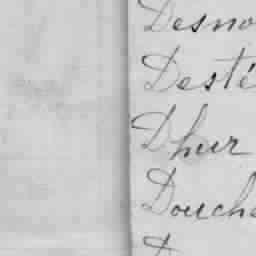 Desno
Desté
Dhur
Douche